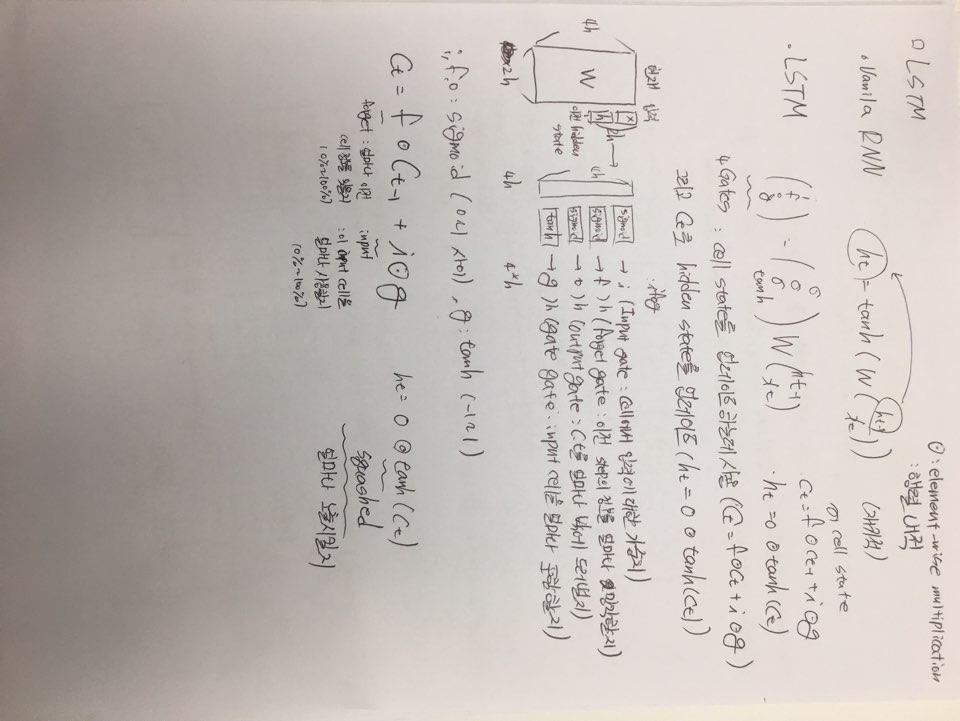 □ LSTM
⊙ : element-wise multiplication
: 행렬 내적
• Vanila RNN ht = tanh ( W ( ht-1 xt ) ) (재귀적)
cell state
• LSTM ( i f o g ) = ( σ σ σ tanh ) W ( ht-1 xt )
Ct = f ⊙ Ct-1 + i ⊙ g
• ht = o ⊙ tanh (Ct)
4 Gates : cell state를 업데이트하는데 사용 (Ct = f ⊙ Ct + i ⊙ g)
그리고 Ct로 hidden state를 업데이트 (ht = o ⊙ tanh (Ct))
: ifog
현재 입력
4h W x h 2h → 4h
이전 hidden state
sigmoid → i (Input gate : cell에서 입력에 대한 가중치)
sigmoid → f )h (forget gate : 이전 step의 정보를 얼마나 망각할지)
sigmoid → o )h (output gate : Ct를 얼마나 밖에 드러낼지)
tanh → g )h (gate gate : input cell을 얼마나 포함할지)
2h 4h 4*h
i, f, o : sigmoid (0~1 사이), g : tanh (-1~1)
Ct = f ⊙ Ct-1 + i ⊙ g
ht = o ⊙ tanh (Ct)
forget : 얼마나 이전
cell 정보를 잊을지
(0%~100%)
input
: 이 input cell을
얼마나 사용할지
(0%~100%)
squashed
얼마나 노출시킬지